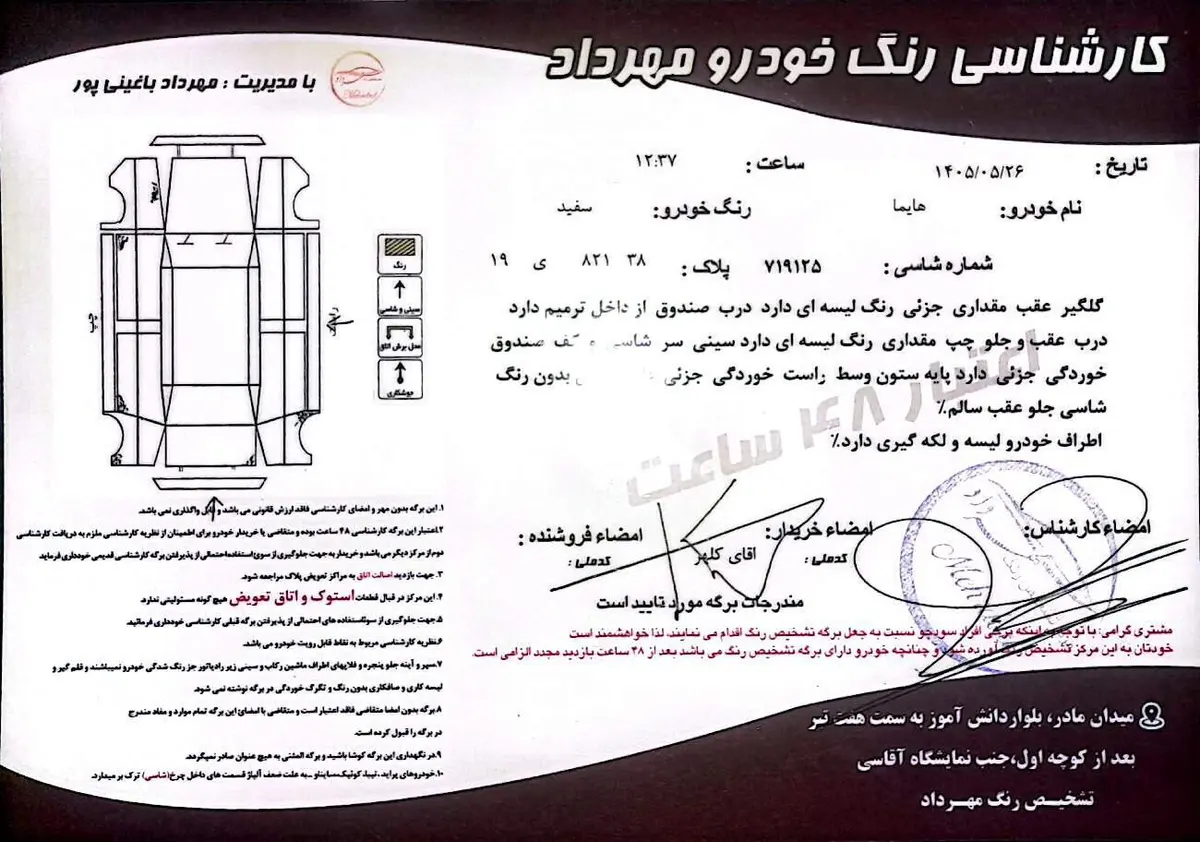 کارشناسی رنگ خودرو مهرداد
با مدیریت : مهرداد باغینی پور
تاریخ : ۱۴۰۵/۰۵/۲۶
ساعت : ۱۲:۳۷
نام خودرو: هایما
رنگ خودرو: سفید
شماره شاسی : ۷۱۹۱۲۵
پلاک : ۳۸ ۸۲۱ ی ۱۹
گلگیر عقب مقداری جزئی رنگ لیسه ای دارد درب صندوق از داخل ترمیم دارد
درب عقب و جلو چپ مقداری رنگ لیسه ای دارد سینی سر شاسی و کف صندوق
خوردگی جزئی دارد پایه ستون وسط راست خوردگی جزئی بدون رنگ
شاسی جلو عقب سالم٪
اطراف خودرو لیسه و لکه گیری دارد.٪
اعتبار ۴۸ ساعت
رنگ
سینی و شاسی
محل برش اتاق
جوشکاری
چپ
راست
امضاء کارشناس:
امضاء خریدار:
کدملی :
اقای کلهر
امضاء فروشنده :
کدملی :
مندرجات برگه مورد تایید است
مشتری گرامی: با توجه به اینکه برخی افراد سودجو نسبت به جعل برگه تشخیص رنگ اقدام می نمایند، لذا خواهشمند است
خودتان به این مرکز تشخیص رنگ آورده شود و چنانچه خودرو دارای برگه تشخیص رنگ می باشد بعد از ۴۸ ساعت بازدید مجدد الزامی است.
۱. این برگه بدون مهر و امضای کارشناسی فاقد ارزش قانونی می باشد و قابل واگذاری نمی باشد.
۲.اعتبار این برگه کارشناسی ۴۸ ساعت بوده و متقاضی یا خریدار خودرو برای اطمینان از نظریه کارشناسی ملزم به دریافت کارشناسی
دوم از مرکز دیگر می باشد و خریدار به جهت جلوگیری از سوء استفاده احتمالی از پذیرفتن برگه کارشناسی قدیمی خودداری فرماید
۳. جهت بازدید اصالت اتاق به مراکز تعویض پلاک مراجعه شود.
۴. این مرکز در قبال قطعات استوک و اتاق تعویض هیچ گونه مسئولیتی ندارد.
۵. جهت جلوگیری از سوءاستفاده های احتمالی از پذیرفتن برگه قبلی کارشناسی خودداری فرمائید.
۶.نظریه کارشناسی مربوط به نقاط قابل رویت خودرو می باشد.
۷.سپر و آینه جلو پنجره و فلاپهای اطراف ماشین رکاب و سینی زیر رادیاتور جز رنگ شدگی خودرو نمیباشند و قلم گیر و
لیسه کاری و صافکاری بدون رنگ و تگرگ خوردگی در برگه نوشته نمی شود.
۸.برگه بدون امضا متقاضی فاقد اعتبار است و متقاضی با امضائ این برگه تمام موارد و مفاد مندرج
در برگه را قبول کرده است.
۹.در نگهداری این برگه کوشا باشید و برگه المثنی به هیچ عنوان صادر نمیگردد.
۱۰.خودروهای پراید ، تیبا، کوئیک،ساینا و ... به علت ضعف آلیاژ قسمت های داخل چرخ(شاسی) ترک بر میدارد.
میدان مادر، بلوار دانش آموز به سمت هفت تیر
بعد از کوچه اول،جنب نمایشگاه آقاسی
تشخیص رنگ مهرداد